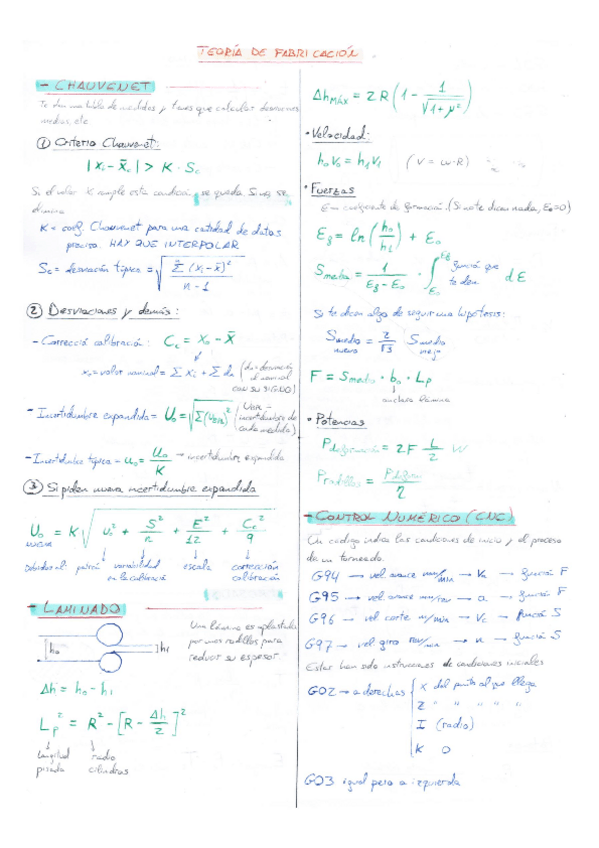 TEORÍA DE FABRICACIÓN
- CHAUVENET
Te dan una tabla de medidas y tienes que calcular desviaciones,
medias, etc
① Criterio Chauvenet:
|xi - x̄c| > K · Sc
Si el valor X cumple esta condición, se queda. Si no, se
elimina
K = coef Chauvenet para una cantidad de datos
precisa. HAY QUE INTERPOLAR
Sc = desviación típica = √(Σ(xi - x̄)² / n - 1)
② Desviaciones y demás:
- Correcció calibración: Cc = x₀ - x̄
x₀ = valor nominal = Σ xi + Σ dn (dn = desviación
al nominal
CON SU SIGNO)
- Incertidumbre expandida = U₀ = √Σ(U)² (incertidumbre de
cada medida)
- Incertidumbre típica - u₀ = U₀/K → incertidumbre expandida
③ Si piden nueva incertidumbre expandida
U₀ = K √(u₀² + S²/n + E²/12 + Cc²/9)
NUEVA
Debidas al: patrón variabilidad escala corrección
en la calibració calibración
- LAMINADO
Una lámina es aplastada
por unos rodillos para
reducir su espesor.
h₀ h₁
Δh = h₀ - h₁
Lp² = R² - [R - Δh/2]²
longitud radio
pisada cilindros
ΔhMÁX = 2R (1 - 1/√(1+μ²))
• Velocidad:
h₀V₀ = h₁V₁ (V = ω·R)
• Fuerzas
E = coeficiente de deformación. (Si no te dicen nada, E₀=0)
Ef = ln (h₀/h₁) + E₀
Smedia = 1/(Ef - E₀) · ∫ función que dE
te den
Si te dicen algo de seguir una hipótesis:
Smedio = 2/√3 Smedio
nuevo viejo
F = Smedio · b₀ · Lp
anchura lámina
• Potencias
Pdeformación = 2F L/2 W
Prodillos = Pdeform/2
- CONTROL NUMÉRICO (CNC)
Un código indica las condiciones de inicio y el proceso
de un torneado.
G94 → vel. avance mm/min → Va → función F
G95 → vel. avance mm/rev → a → función F
G96 → vel corte m/min → Vc → función S
G97 → vel giro rev/min → n → función S
Estas han sido instrucciones de condiciones iniciales
G02 → a derechas { X del punto al que llega
Z " " " " "
I (radio)
K 0
G03 igual pero a izquierda